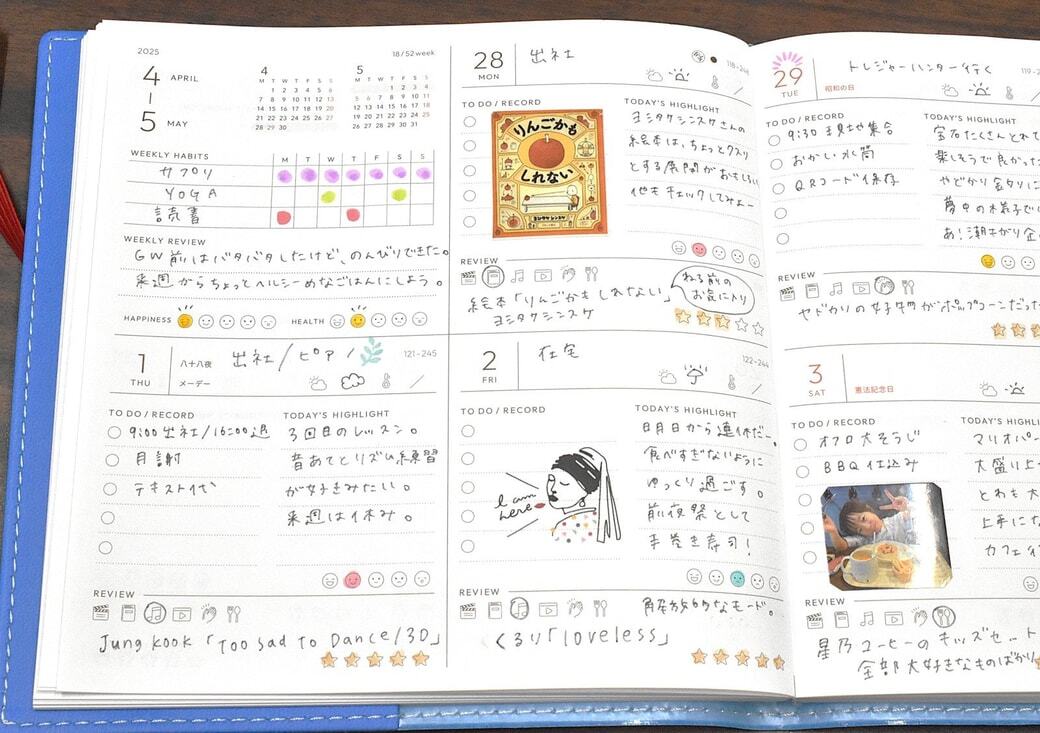 2025
18/52week
4 APRIL
5 MAY
4
M T W T F S S
1 2 3 4 5 6
7 8 9 10 11 12 13
14 15 16 17 18 19 20
21 22 23 24 25 26 27
28 29 30
5
M T W T F S S
1 2 3 4
5 6 7 8 9 10 11
12 13 14 15 16 17 18
19 20 21 22 23 24 25
26 27 28 29 30 31
WEEKLY HABITS
M T W T F S S
サプリ
YOGA
読書
WEEKLY REVIEW
GW前はバタバタしたけど、のんびりできた。
来週からちょっとヘルシーめなごはんにしよう。
HAPPINESS
HEALTH
28 MON
出社
118-246
TO DO / RECORD
りんごかも
しれない
ヨシタケシンスケ
TODAY'S HIGHLIGHT
ヨシタケシンスケさんの
絵本は、ちょっとクスリ
とする展開がおもしろい
他もチェックしてみよー
REVIEW
絵本「りんごかもしれない」
ヨシタケシンスケ
ねる前の
お気に入り
29 TUE
昭和の日
トレジャーハンター行く
TO DO / RECORD
9:30 現地集合
おかし 水筒
QRコード保存
TODAY'S HIGHLIGHT
宝石たくさんとれて
楽しそうで良かった
やどかり釣りに
夢中の様子で
あ!潮干がり
REVIEW
ヤドカリの好物がポップコーンだった
1 THU
八十八夜
メーデー
出社/ピアノ
121-245
TO DO / RECORD
9:00出社/16:00退
月謝
テキスト代
TODAY'S HIGHLIGHT
3回目のレッスン。
音あてとリズム練習
が好きみたい。
来週は休み。
REVIEW
Jung Kook「Too Sad To Dance/3D」
2 FRI
在宅
122-244
TO DO / RECORD
I am
here
TODAY'S HIGHLIGHT
明日から連休だー。
食べすぎないように
ゆっくり過ごす。
前夜祭として
手巻き寿司!
REVIEW
解放的なモード。
くるり「loveless」
3 SAT
憲法記念日
TO DO / RECORD
オフロ大そうじ
BBQ仕込み
TODAY'S HIGHLIGHT
マリオパー
大盛り上
とわも大
上手にな
カフェ
REVIEW
星乃コーヒーのキッズセット
全部大好きなものばかり